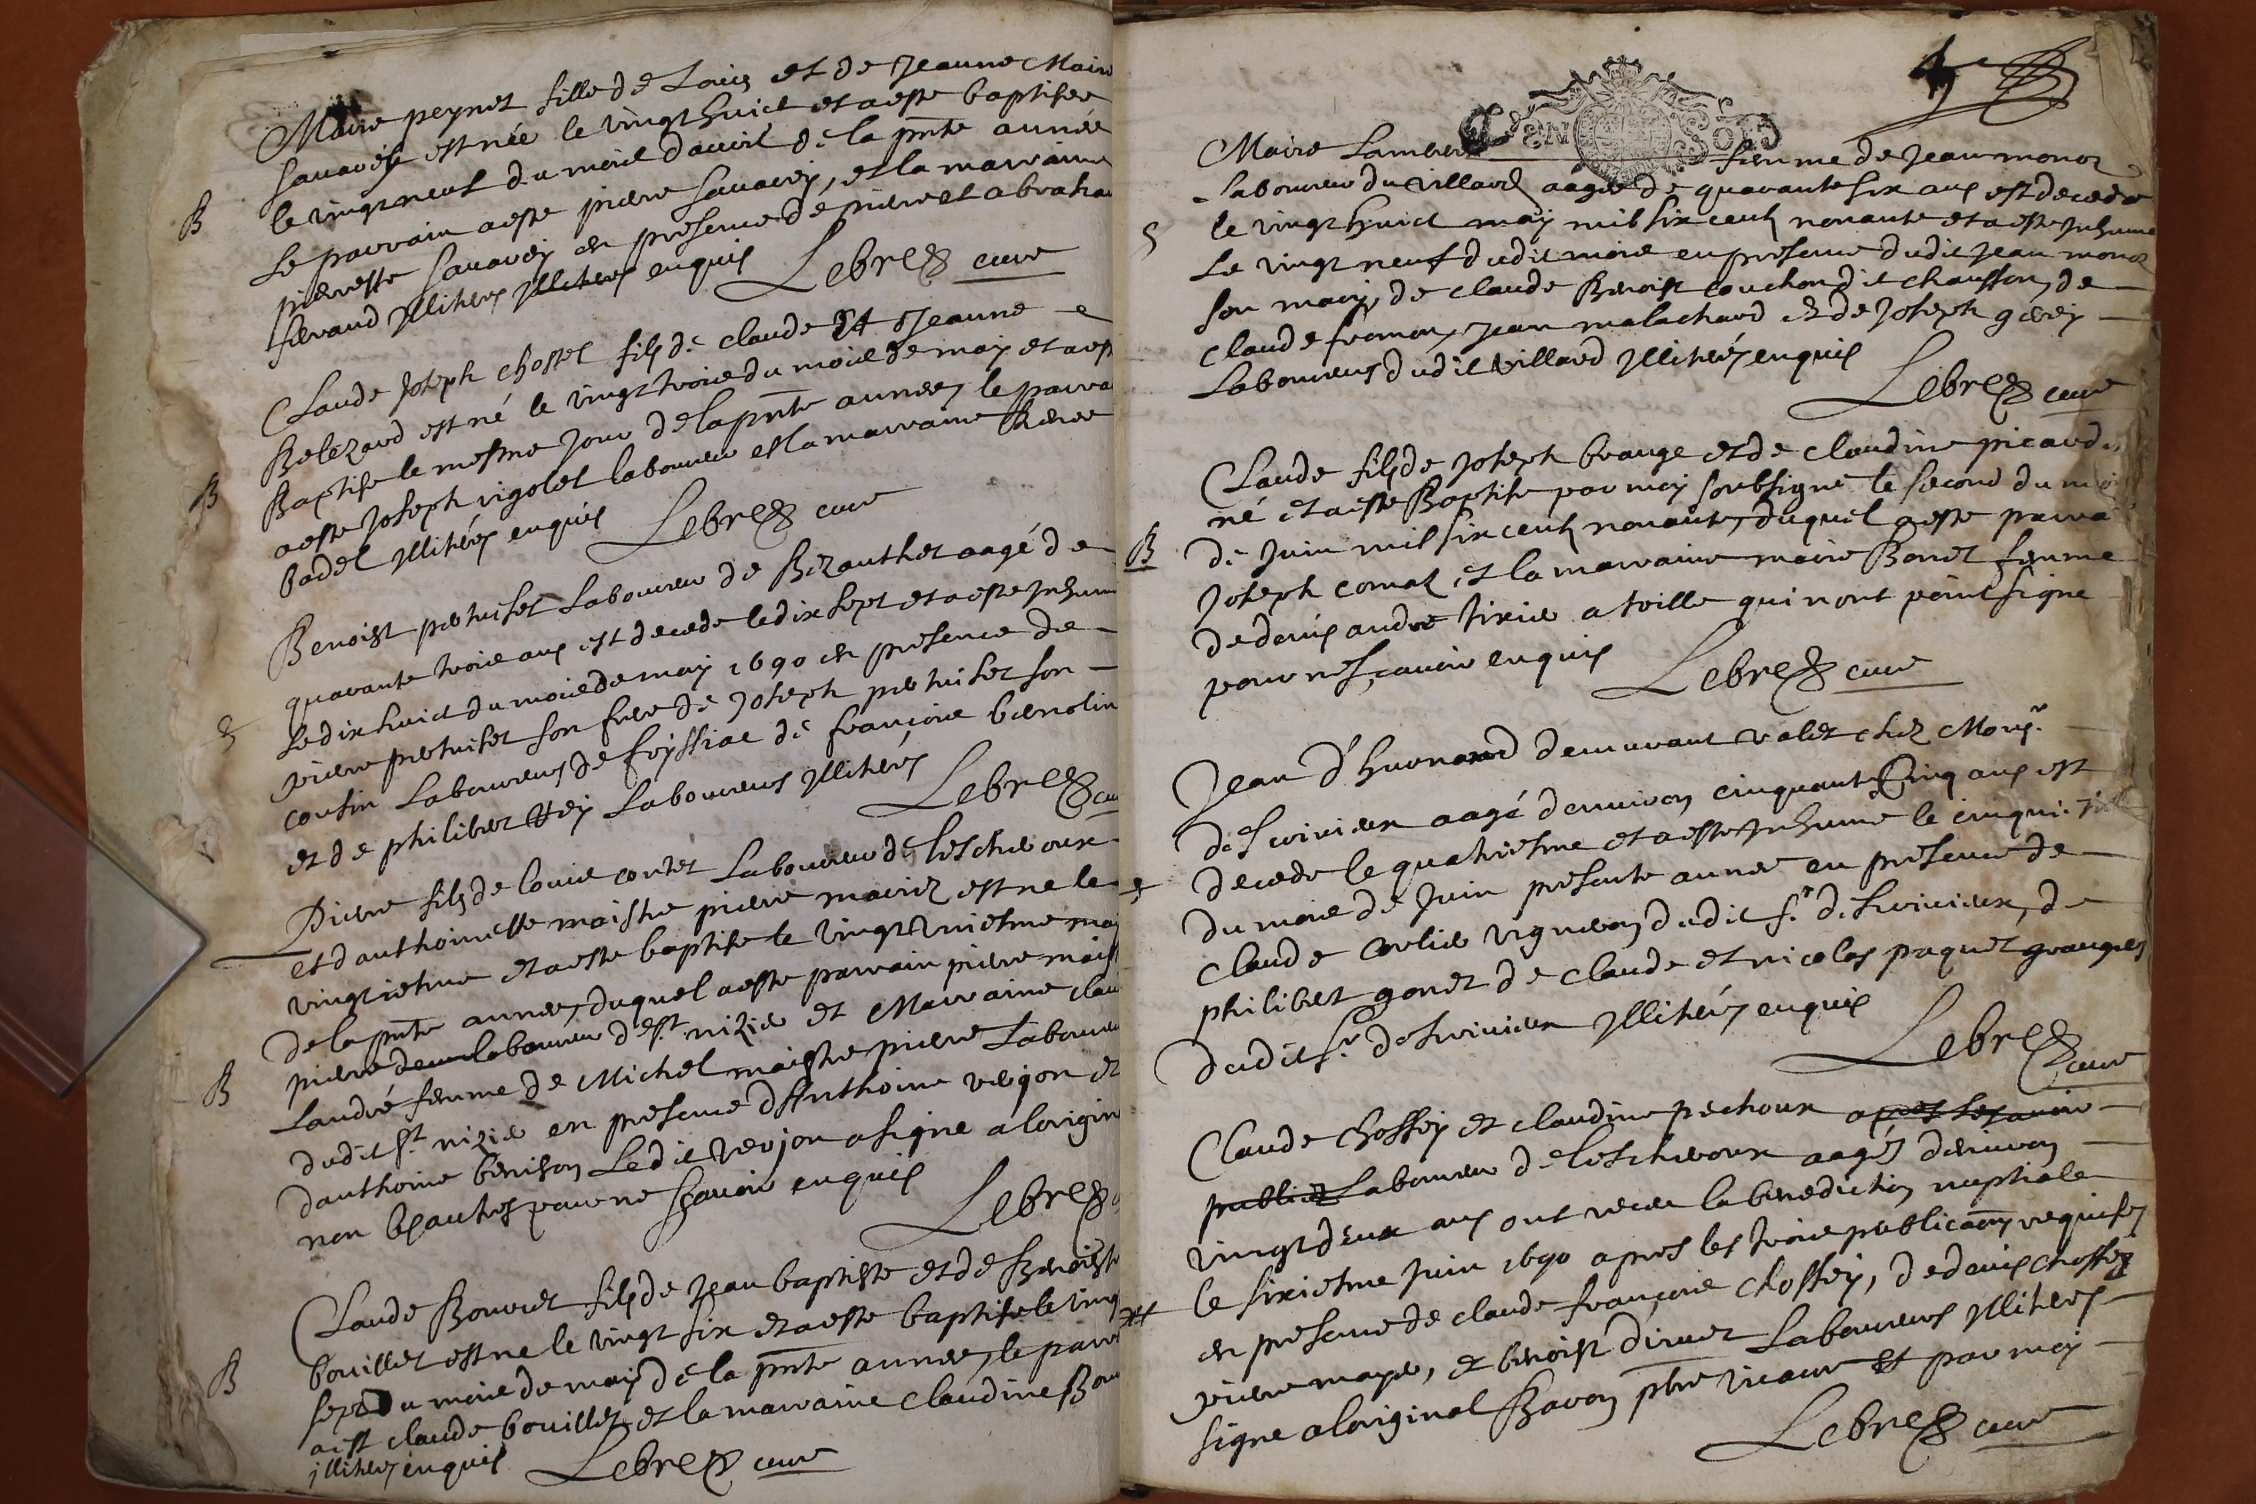 Marie peynet fille de Louis et de Jeanne Marie
Savarey est née le vingt huict et a esté baptisée
B le vingt neuf du mois d'avril de la pnte année
Le parrain a esté pierre Savarey, et la marraine
pierrette Savarey en presence de pierre et abraham
feraud illiteres enquis Lebret curé
Claude Joseph chossel fils de Claude et Jeanne
Belezard est né le vingt trois du mois de may et a esté
B Baptisé le mesme jour de la pnte année, le parra
a esté Joseph rigolet laboureur et la marraine
badel illiterés enquis Lebret curé
Benoist pertuiset Laboureur de Bizanthet aagé de
quarante trois ans est decede le dix sept et a esté inhumé
S Le dix huict du mois de may 1690 en presence de
pierre pertuiset son frere de Joseph pertuiset son
cousin Laboureurs de foissiac de françois bernolin
et de philibert Rey Laboureurs illiterés
Lebret cu
Pierre fils de louis contet Laboureur de leschoux
et d'anthoinette maistre pierre mariez est né le
vingtiesme et a esté baptisé le vingt uniesme may
de la pnte année, duquel a esté parrain pierre maist
B pierre laboureur de st nizier et Marraine clau
Landré femme de Michel maistre pierre Labour
dudit st nizier en presence d'Anthoine verjon et
d'anthoine benison Ledit verjon a signé a l'origin
non les autres pour ne sçavoir enquis
Lebret
Claude Bouvret fils de Jean baptiste et de Benoiste
bouillet est né le vingt six et a esté baptisé le ving
B sept du mois de may de la pnte année, le parr
a est claude bouillet et la marraine claudine Bou
illiteres enquis Lebret curé
Marie Lambert femme de Jean monoz
Laboureur du villard aagée de quarante six ans est decedée
S le vingt huict may mil six cents nonante et a esté inhumé
Le vingt neuf dudit mois en presence dudit Jean monoz
son mary, de claude Benoist couchon dit chausson, de
claude fromon, jean malachard et de Joseph gerey
Laboureurs dudit villard illiterés enquis
Lebret curé
Claude fils de Joseph brange et de claudine picard
né et a esté Baptisé par moy soubsigné le second du mois
B de Juin mil six cents nonante, duquel a esté parrai
Joseph comaz, et la marraine marie Bonet femme
de denis andré tixier a toille qui n'ont point signé
pour ne sçavoir enquis Lebret curé
Jean d'huonard demeurant valet chez Monsr
de Srivieux aagé d'environ cinquante Cinq ans est
S decede le quatriesme et a esté inhumé le cinquiesme
du mois de Juin presente année en presence de
claude Corlier vigneron dudit sr de Srivieux, de
philibert gonet de claude et nicolas paquet grangers
dudit sr de Srivieux illiterés enquis
Lebret curé
Claude chossey et claudine pechoux
Laboureur de leschoux aagés d'environ
vingt deux ans ont receu la benediction nuptiale
le sixiesme Juin 1690 apres les trois publicaons requises
en presence de claude françois chossey, de denis chossey
pierre mayer, et benoist divet Laboureurs illiteres
signé a l'original Baron ptre vicaire et par moy
Lebret curé